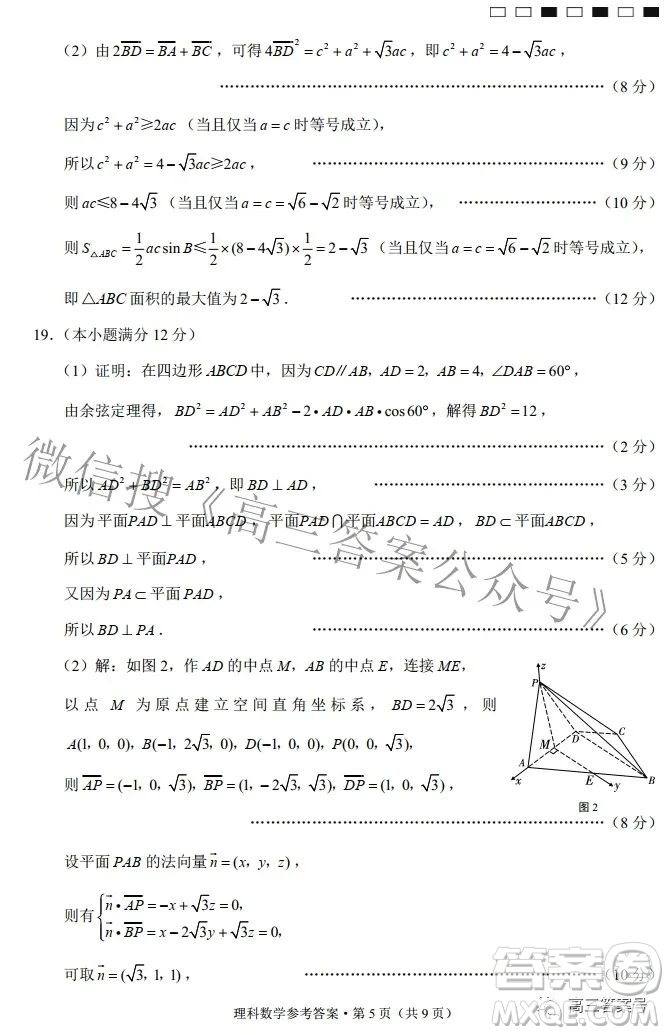 （2）由2BD = BA + BC，可得4BD² = c² + a² + √3ac，即c² + a² = 4 − √3ac，
……（8 分）
因为c² + a² ≥ 2ac（当且仅当a = c时等号成立），
所以c² + a² = 4 − √3ac ≥ 2ac， ……（9 分）
则ac ≤ 8 − 4√3（当且仅当a = c = √6 − √2时等号成立）， ……（10 分）
则S△ABC = 1/2 ac sin B ≤ 1/2 × (8 − 4√3) × 1/2 = 2 − √3（当且仅当a = c = √6 − √2时等号成立），
即△ABC面积的最大值为2 − √3． ……（12 分）
19．（本小题满分 12 分）
（1）证明：在四边形ABCD中，因为CD∥AB，AD = 2，AB = 4，∠DAB = 60°，
由余弦定理得，BD² = AD² + AB² − 2•AD•AB•cos60°，解得BD² = 12，
……（2 分）
所以AD² + BD² = AB²，即BD ⊥ AD， ……（3 分）
因为平面PAD ⊥ 平面ABCD，平面PAD∩平面ABCD = AD，BD ⊂ 平面ABCD，
所以BD ⊥ 平面PAD， ……（5 分）
又因为PA ⊂ 平面PAD，
所以BD ⊥ PA． ……（6 分）
（2）解：如图 2，作AD的中点M，AB的中点E，连接ME，
以点 M 为原点建立空间直角坐标系，BD = 2√3，则
A(1，0，0)，B(−1，2√3，0)，D(−1，0，0)，P(0，0，√3)，
则AP = (−1，0，√3)，BP = (1，−2√3，√3)，DP = (1，0，√3)，
……（8 分）
z
P
D
C
M
A
x
E
y
B
图 2
设平面PAB的法向量n = (x，y，z)，
则有{n•AP = −x + √3z = 0，
n•BP = x − 2√3y + √3z = 0，
可取n = (√3，1，1)， ……（10 分）
理科数学参考答案·第 5 页（共 9 页）
微信搜《高三答案公众号》
高三答案号
答案圈
MXQE.COM